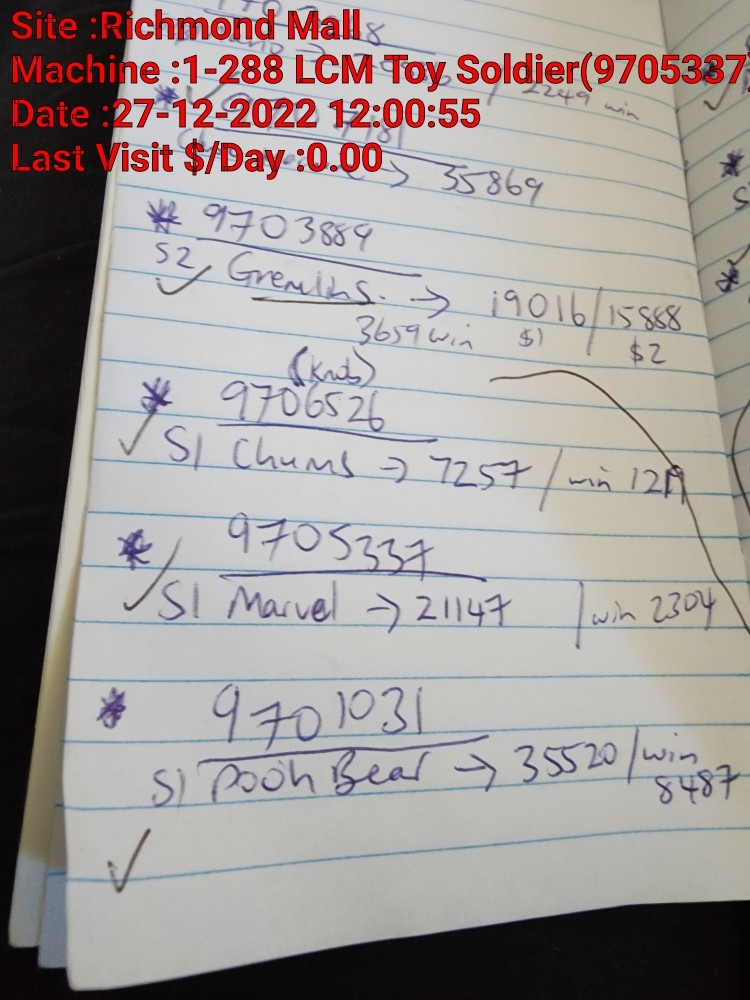 Site :Richmond Mall
Machine :1-288 LCM Toy Soldier(9705337)
Date :27-12-2022 12:00:55
Last Visit $/Day :0.00
2249 win
→ 35869
* 9703889
S2 Gremlins. → 19016/15868
3659 win $1 $2
(Knob)
* 9706526
S1 Chums → 7257 / win
* 9705337
S1 Marvel → 21147 / win 2304
* 9701031
S1 Pooh Bear → 35520 / win
8487